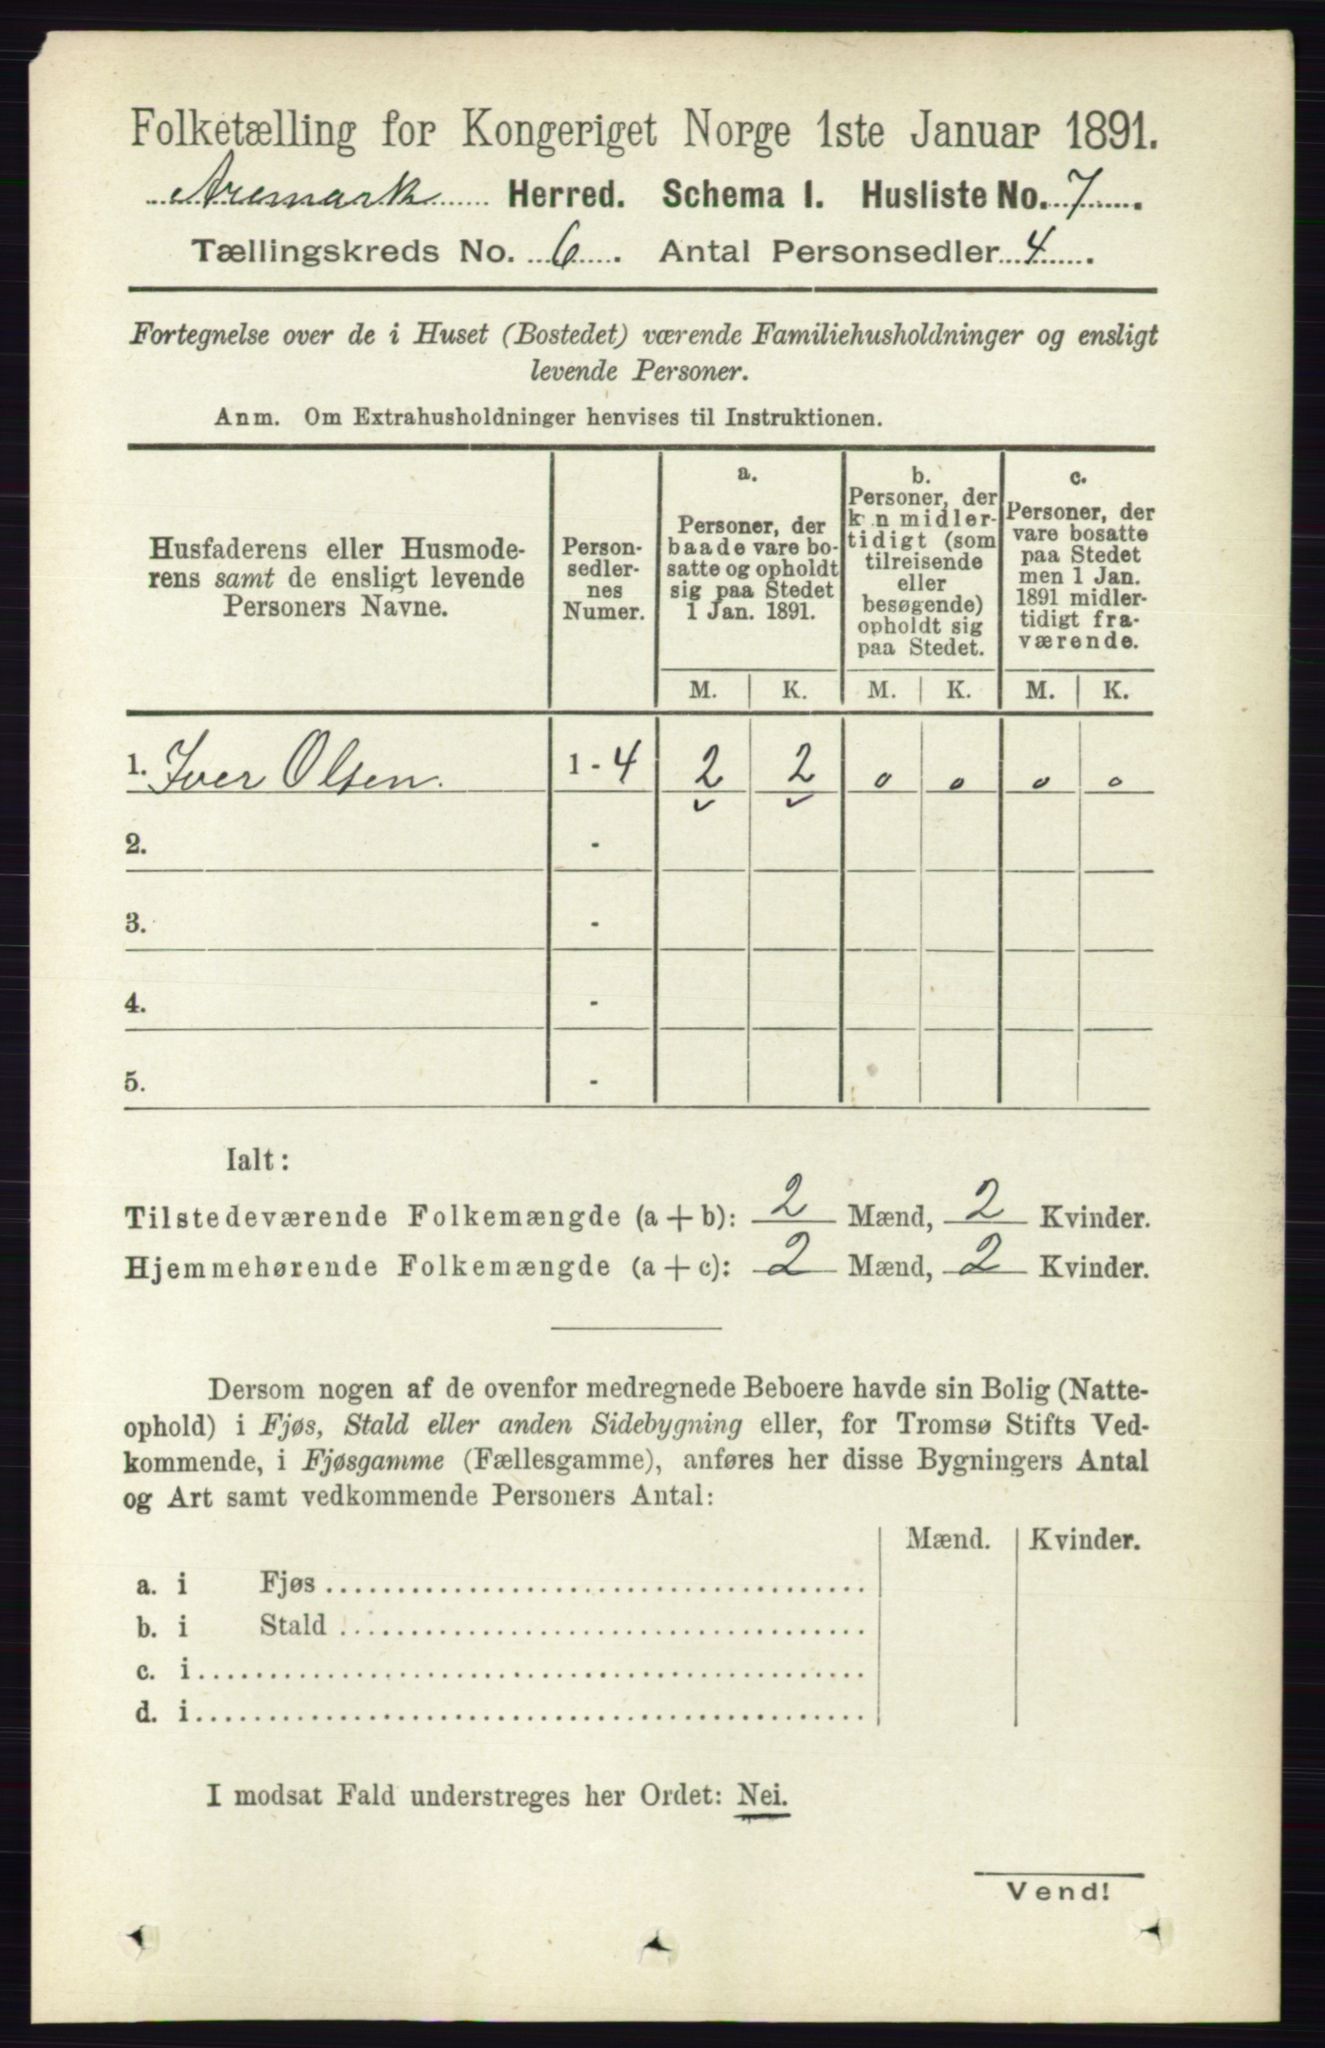 Folketælling for Kongeriget Norge 1ste Januar 1891.
Aremark Herred. Schema I. Husliste No. 7.
Tællingskreds No. 6. Antal Personsedler 4.
Fortegnelse over de i Huset (Bostedet) værende Familiehusholdninger og ensligt
levende Personer.
Anm. Om Extrahusholdninger henvises til Instruktionen.
Husfaderens eller Husmode-
rens samt de ensligt levende
Personers Navne.
Person-
sedler-
nes
Numer.
a.
Personer, der
baade vare bo-
satte og opholdt
sig paa Stedet
1 Jan. 1891.
b.
Personer, der
kun midler-
tidigt (som
tilreisende
eller
besøgende)
opholdt sig
paa Stedet.
c.
Personer, der
vare bosatte
paa Stedet
men 1 Jan.
1891 midler-
tidigt fra-
værende.
M. K. M. K. M. K.
1. Iver Olsen. 1 - 4 2 2 0 0 0 0
2. -
3. -
4. -
5. -
Ialt:
Tilstedeværende Folkemængde (a + b): 2 Mænd, 2 Kvinder.
Hjemmehørende Folkemængde (a + c): 2 Mænd, 2 Kvinder.
Dersom nogen af de ovenfor medregnede Beboere havde sin Bolig (Natte-
ophold) i Fjøs, Stald eller anden Sidebygning eller, for Tromsø Stifts Ved-
kommende, i Fjøsgamme (Fællesgamme), anføres her disse Bygningers Antal
og Art samt vedkommende Personers Antal:
Mænd. Kvinder.
a. i Fjøs
b. i Stald
c. i
d. i
I modsat Fald understreges her Ordet: Nei.
Vend!